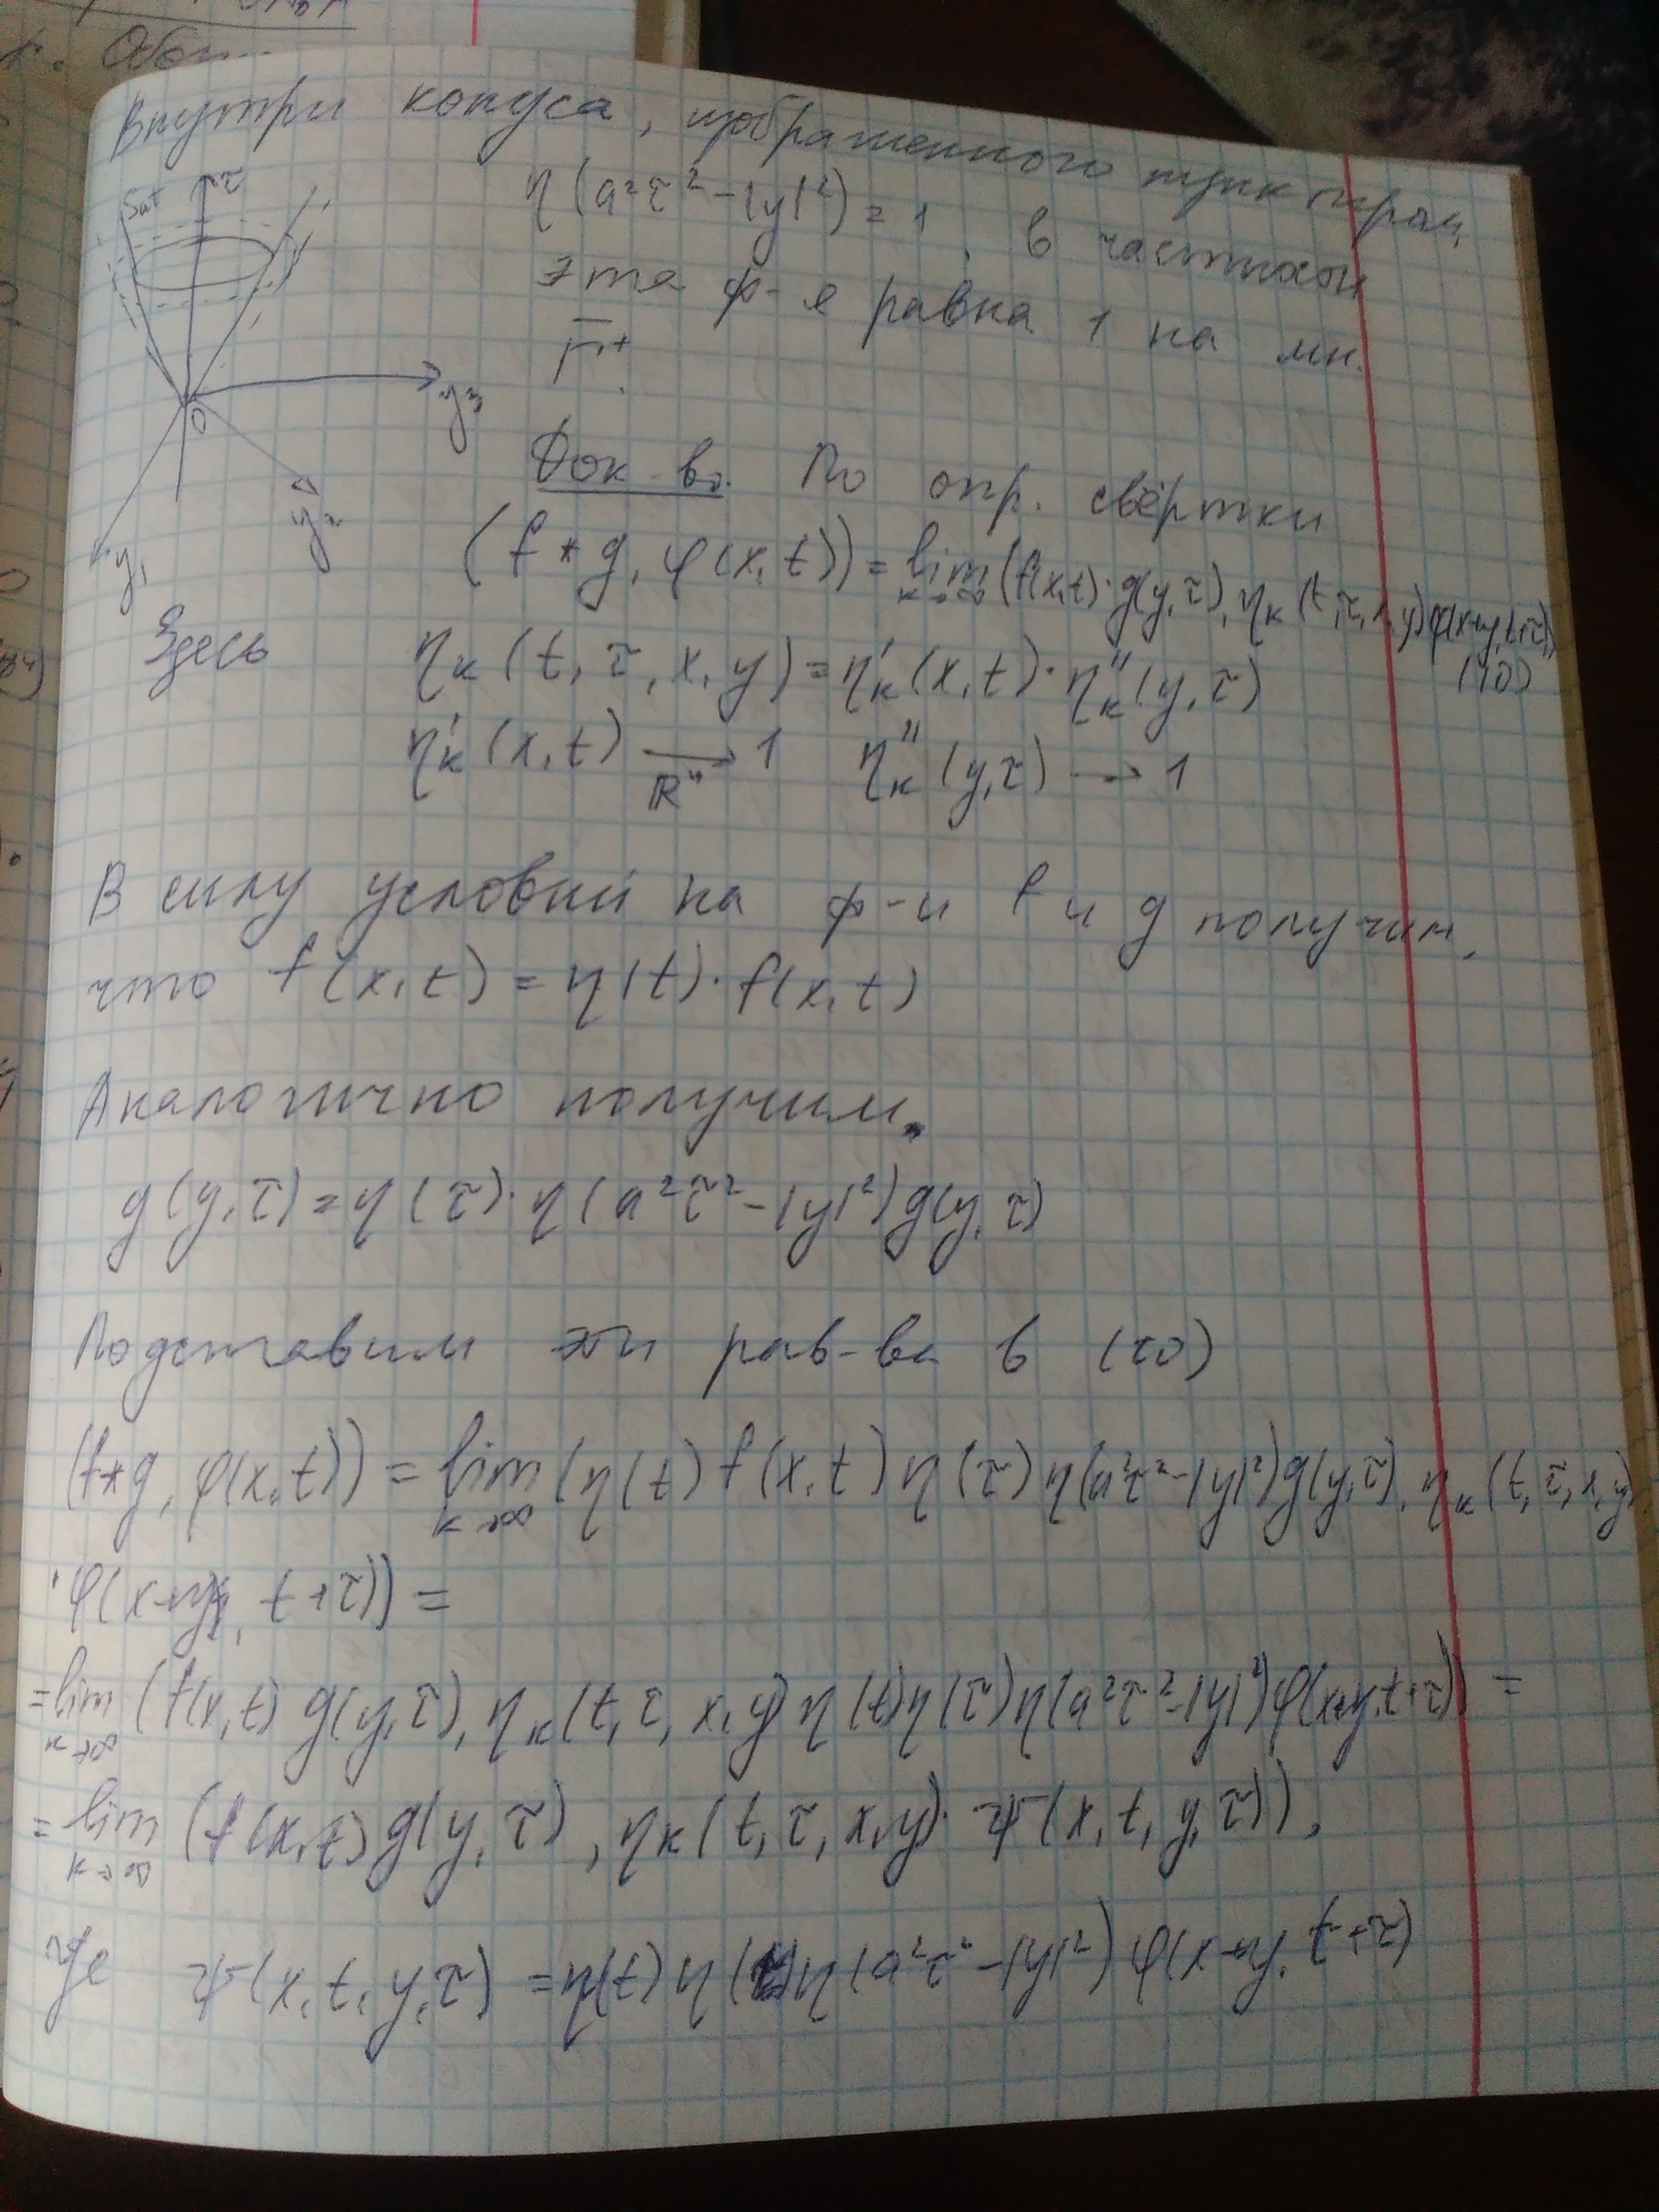 Внутри конуса, изображенного пунктиром,
η(a²τ²-|y|²)=1, в частности
эта ф-я равна 1 на мн.
Γ̅⁺.
Sat
τ
0
y₃
y₂
y₁
Док-во. По опр. свёртки
(f*g, φ(x,t)) = lim k→∞ (f(x,t)·g(y,τ), ηk(t,τ,x,y)φ(x+y,t+τ))
(10)
Здесь ηk(t,τ,x,y)=η'k(x,t)·η''k(y,τ)
η'k(x,t) →ℝⁿ 1 η''k(y,τ) → 1
В силу условий на ф-и f и g получим,
что f(x,t)=η(t)·f(x,t)
Аналогично получим.
g(y,τ)=η(τ)·η(a²τ²-|y|²)g(y,τ)
Подставим эти рав-ва в (10)
(f*g, φ(x,t)) = lim k→∞ (η(t)f(x,t)η(τ)η(a²τ²-|y|²)g(y,τ), ηk(t,τ,x,y)
·φ(x+y, t+τ)) =
= lim k→∞ (f(x,t) g(y,τ), ηk(t,τ,x,y)η(t)η(τ)η(a²τ²-|y|²)φ(x+y,t+τ)) =
= lim k→∞ (f(x,t) g(y,τ), ηk(t,τ,x,y)·ψ(x,t,y,τ)),
где ψ(x,t,y,τ) = η(t)η(τ)η(a²τ²-|y|²)φ(x+y, t+τ)